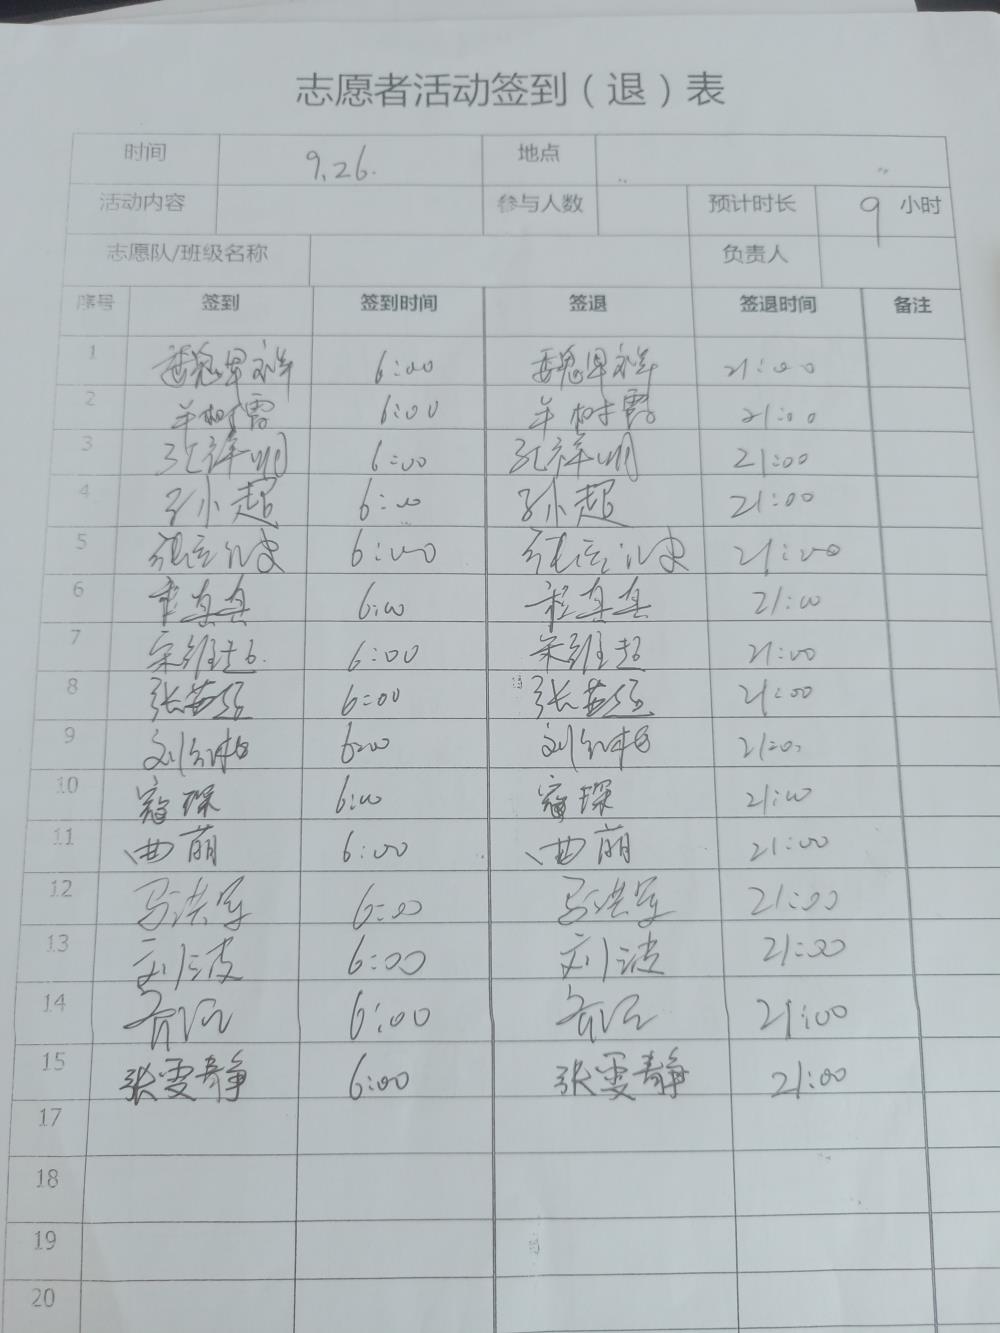 志愿者活动签到（退）表
时间 9.26. 地点
活动内容 参与人数 预计时长 9 小时
志愿队/班级名称 负责人
序号 签到 签到时间 签退 签退时间 备注
1 6:00 21:00
2 6:00 21:00
3 孔祥明 6:00 孔祥明 21:00
4 孙超 6:00 孙超 21:00
5 6:00 21:00
6 程真真 6:00 程真真 21:00
7 宋维超 6:00 宋维超 21:00
8 6:00 21:00
9 6:00 21:00
10 寇琛 6:00 寇琛 21:00
11 曲萌 6:00 曲萌 21:00
12 马洪军 6:00 马洪军 21:00
13 刘波 6:00 刘波 21:00
14 6:00 21:00
15 张雯静 6:00 张雯静 21:00
17
18
19
20